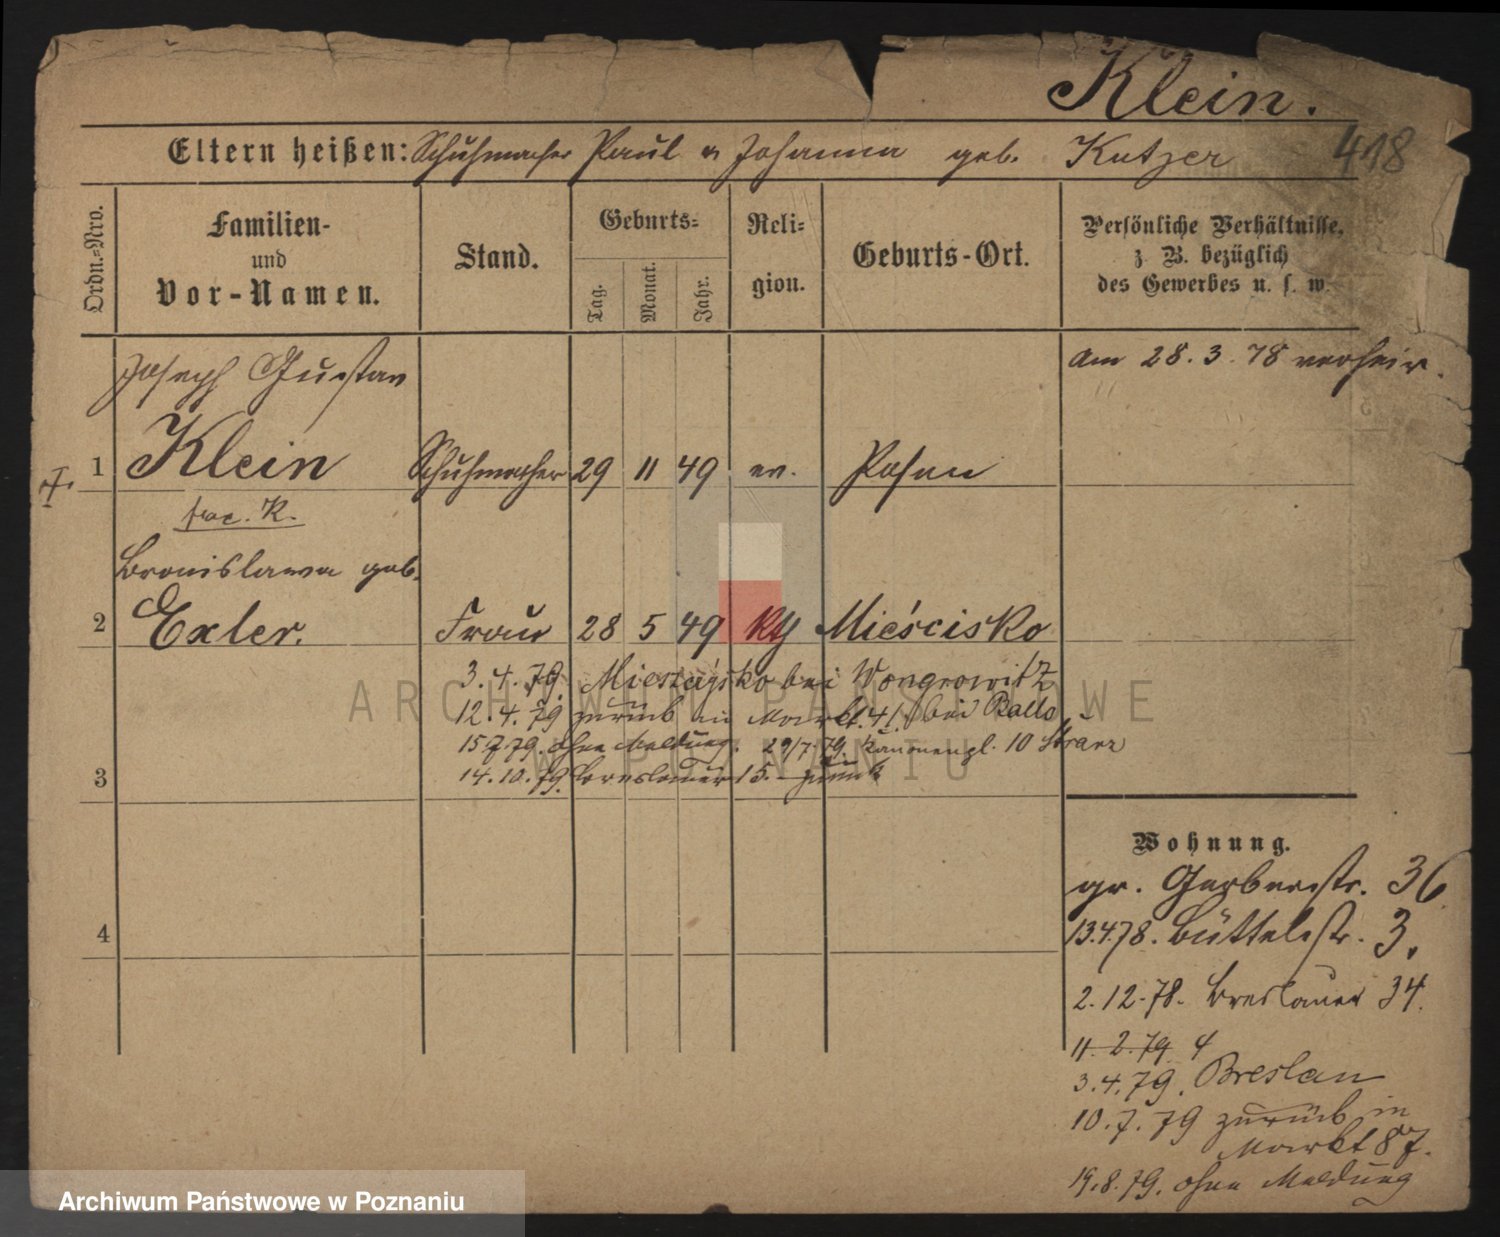 Klein.
Eltern heißen: Schuhmacher Paul u Johanna geb. Kutzer 418
Ordn.-Nro.
Familien-
und
Vor-Namen.
Stand.
Geburts-
Tag.
Monat.
Jahr.
Reli-
gion.
Geburts-Ort.
Persönliche Verhältnisse,
z. B. bezüglich
des Gewerbes u. s. w.
Joseph Gustav
am 28. 3. 78 verheir.
1 Klein Schuhmacher 29 11 49 ev. Posen
K.
Bronislawa geb.
2 Exler. Frau 28 5 49 kth Mieścisko
3. 4. 79. bei Wongrowitz
12. 4. 79 zurück Markt 41 bei
15 7 79. ohne Meldung. 29/7. 79. Kanonenpl. 10
14. 10. 79. Breslauer 15. zurück
3
4
Wohnung.
gr. Gerberstr. 36
13.4.78. Büttelstr. 3.
2. 12. 78. Breslauer 34.
11. 2. 79 4
3. 4. 79. Breslau
10. 7. 79 zurück in
Markt 87.
19. 8. 79. ohne Meldung
ARCHIWUM PAŃSTWOWE
W POZNANIU
Archiwum Państwowe w Poznaniu